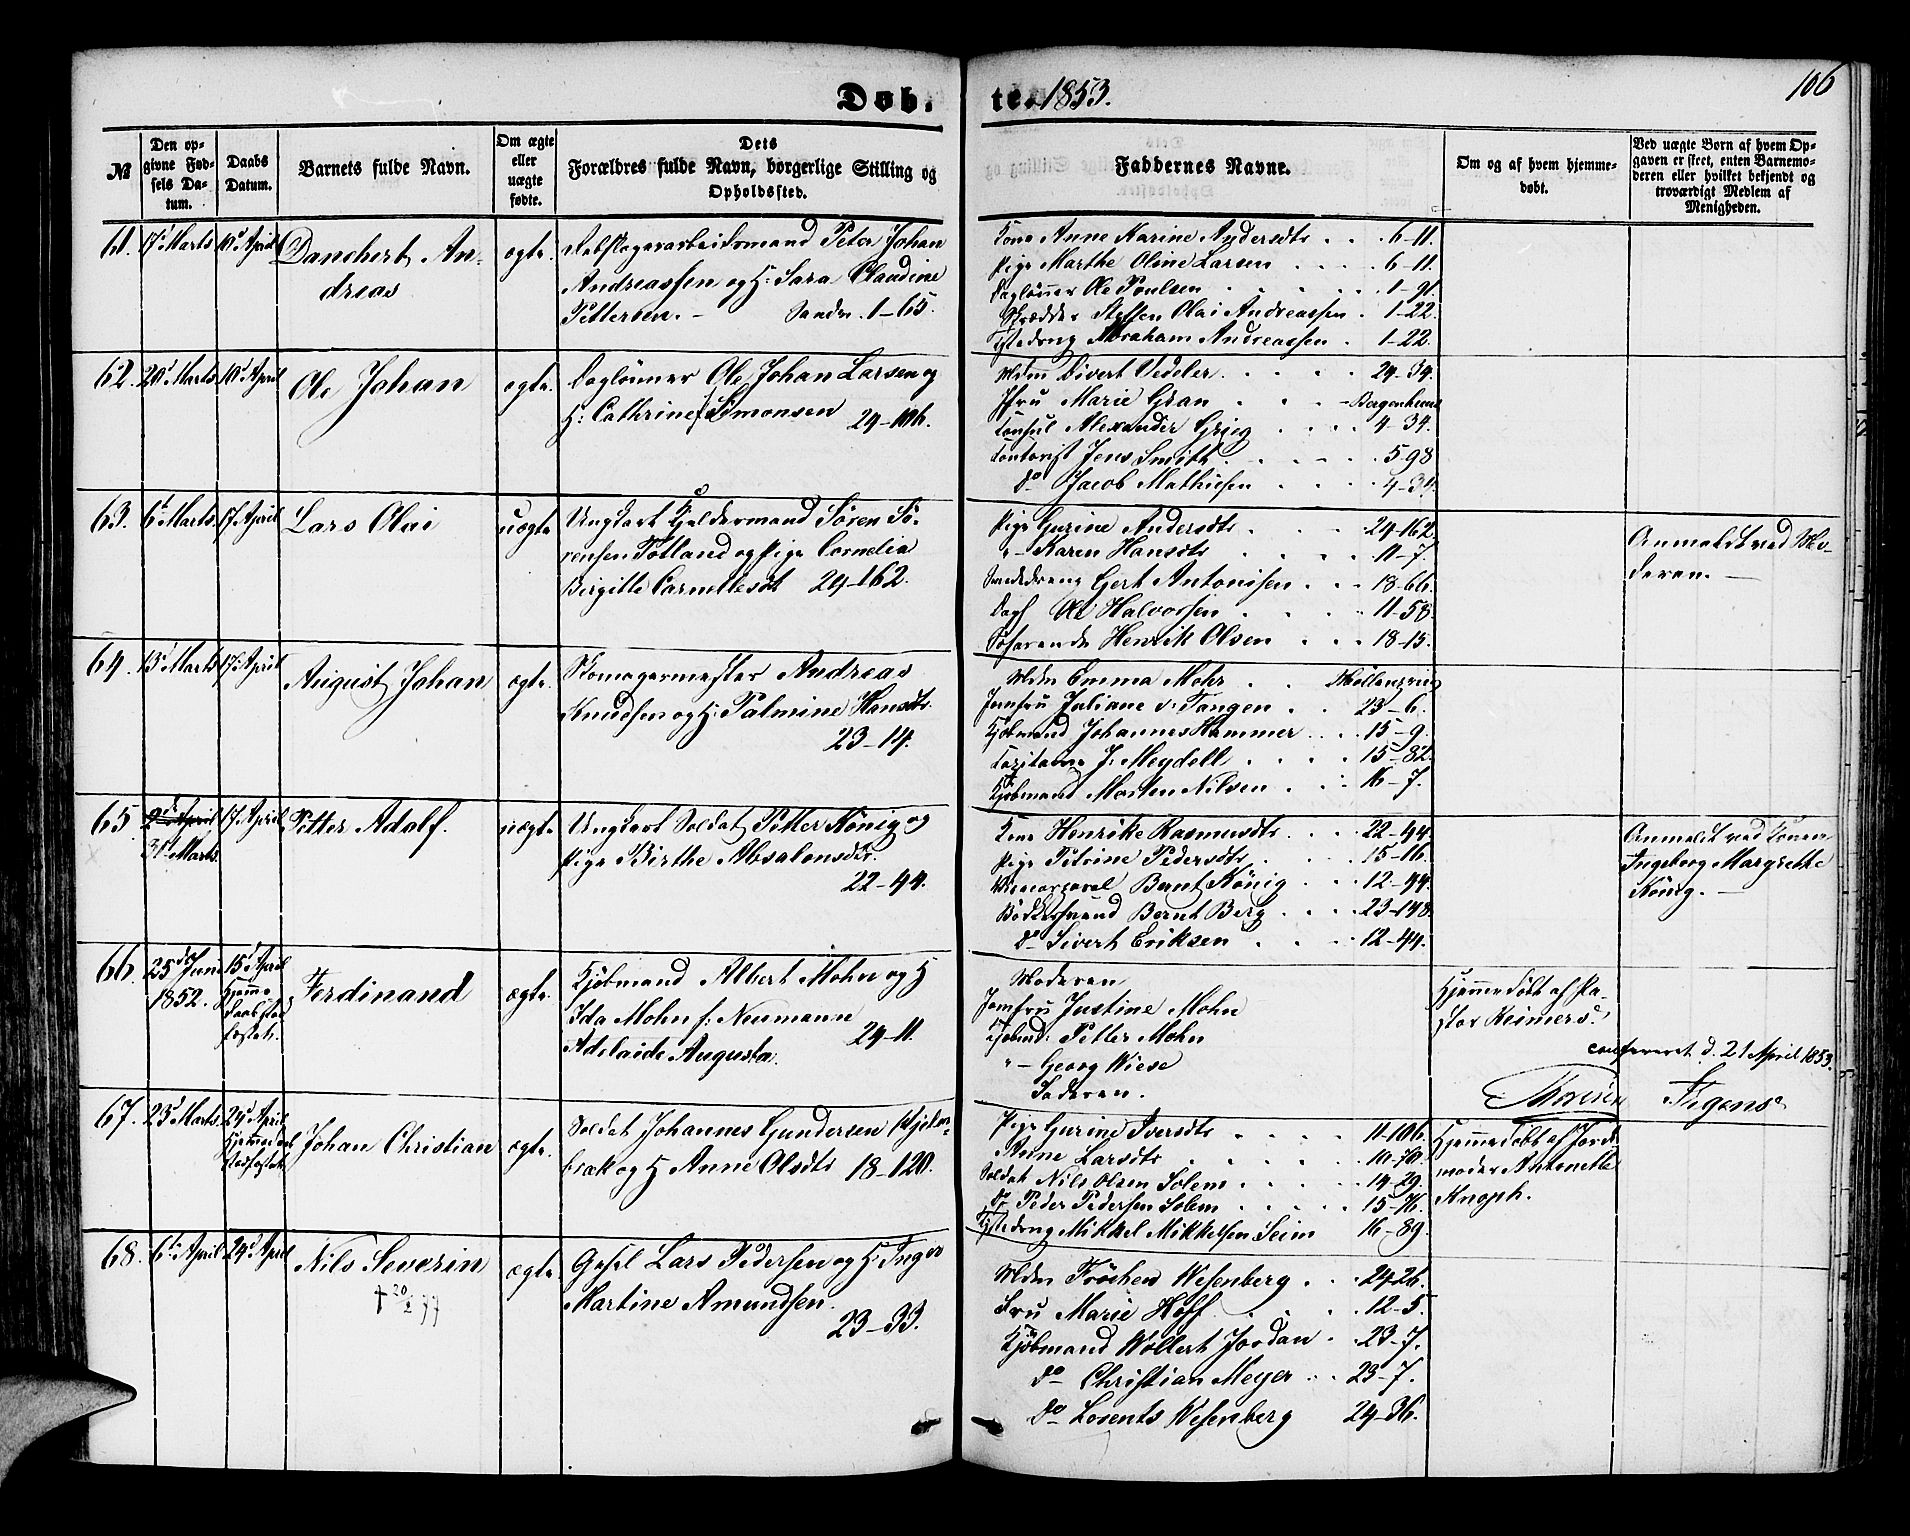 Døb.
te. 1853.
106
№
Den op-
givne Fød-
sels Da-
tum.
Daabs
Datum.
Barnets fulde Navn.
Om ægte
eller
uægte
fødte.
Dets
Forældres fulde Navn, borgerlige Stilling og
Opholdssted.
Faddernes Navne.
Om og af hvem hjemme-
døbt.
Ved uægte Børn af hvem Op-
gaven er skeet, enten Barnemo-
deren eller hvilket bekjendt og
troværdigt Medlem af
Menigheden.
61. 17d Marts 10d April Danchert An-
dreas
ægte.
Rebslagerarbeidsmand Peter Johan
Andreassen og H: Sara Claudine
Pettersen. – Sandv. 1–65.
Kone Anne Karine Andersdtr . . 6–11.
Pige Marthe Oline Larsen . . . . 6–11.
Dagløner Ole Poulsen . . . . 1–91
Skrædder Steffen Olai Andreassen . 1–22.
Abraham Andreassen . 1–22.
62. 20d Marts 10d April Ole Johan
ægte.
Dagløner Ole Johan Larsen og
H: Cathrine Simonsen 24–106.
Mdm Divert Vedeler . . . . 24–34.
Jfru Marie Gran . . . – Bergenhuus
Consul Alexander Grieg . . . . 4–34.
Contorist Jens Smith . . . . 5–98
do Jacob Mathiesen . . . . 4–34.
63. 6d Marts. 17d April Lars Olai
uægte
Ungkarl Kjeldermand Sören Sö-
rensen Totland og Pige Cornelia
Birgitte Corneliesdt 24–162.
Pige Gurine Andersdtr . . . 24–162
„– Karen Hansdtr . . . . 11–7.
Smededreng Gert Antonisen . . . 18–66.
Dagl Ole Halvorsen . . . . 11–58.
Søfarende Henrik Olsen . . . 18–15.
Anmeldt ved Mo-
deren. –
64. 13d Marts 17d April
August Johan
ægte.
Skomagermester Andreas
Knudsen og H: Palmine Hansdtr.
23–14.
Mdm Emma Mohr . . Möllensvig
Jomfru Juliane v: Tangen . . 23–6.
Kjøbmand Johannes Hammer . . . 15–9.
Capitaine J: Meydell . . . . 15–82.
Kjøbmand Morten Nilsen . . 16–7.
65. 2d April
31d Marts.
17d April Petter Adolf.
uægte.
Ungkarl Soldat Petter König og
Pige Birthe Absalonsdtr.
22–44.
Kone Henrike Rasmusdtr . . . 22–44.
Pige Petrine Pedersdtr . . . . 15–16.
Bernt König . . . 12–44.
Bødkersvend Bernt Berg . . . . 23–148.
do Sivert Eriksen . . . 12–44.
Anmeldt ved Konen
Ingeborg Margrethe
König. –
66. 25de Juni
1852.
15d April
Hjemme
daab stad
fæstet.
Ferdinand
ægte.
Kjøbmand Albert Mohn og H
Ida Mohn f: Neumann
Adelaide Augusta. 24–11.
Moderen
Jomfru Justine Mohn
Kjøbmd: Petter Mohn
„– Georg Wiese
Faderen.
Hjemmedøbt af Pa-
stor Reimers.
confereret d. 21 April 1853.
67. 23d Marts. 24d April
Hjemmedaab
stadfæstet.
Johan Christian
ægte.
Soldat Johannes Gundersen Hjelm-
bræk og H Anne Olsdtr 18–120.
Pige Gurine Iversdtr . . . . 11–106.
Anne Larsdtr . . . . 10–70.
Soldat Nils Olsen Solem . . . . 14–29.
do Peder Pedersen Solem . . . . 15–76.
Mikkel Mikkelsen Seim 16–89.
Hjemmedøbt af Jord-
moder Antonette
Knoph.
68. 6d April 24d April Nils Severin
† 20/2 77
ægte.
Gesel Lars Pedersen og H: Inger
Martine Amundsen.
23–33.
Mdm Tröchen Wesenberg . . . 24–26.
Fru Marie Hoff . . . . 12–5.
Kjøbmand Wollert Jordan . 23–7.
do Christian Meyer . . 23–7.
do Lorents Wesenberg 24–36.